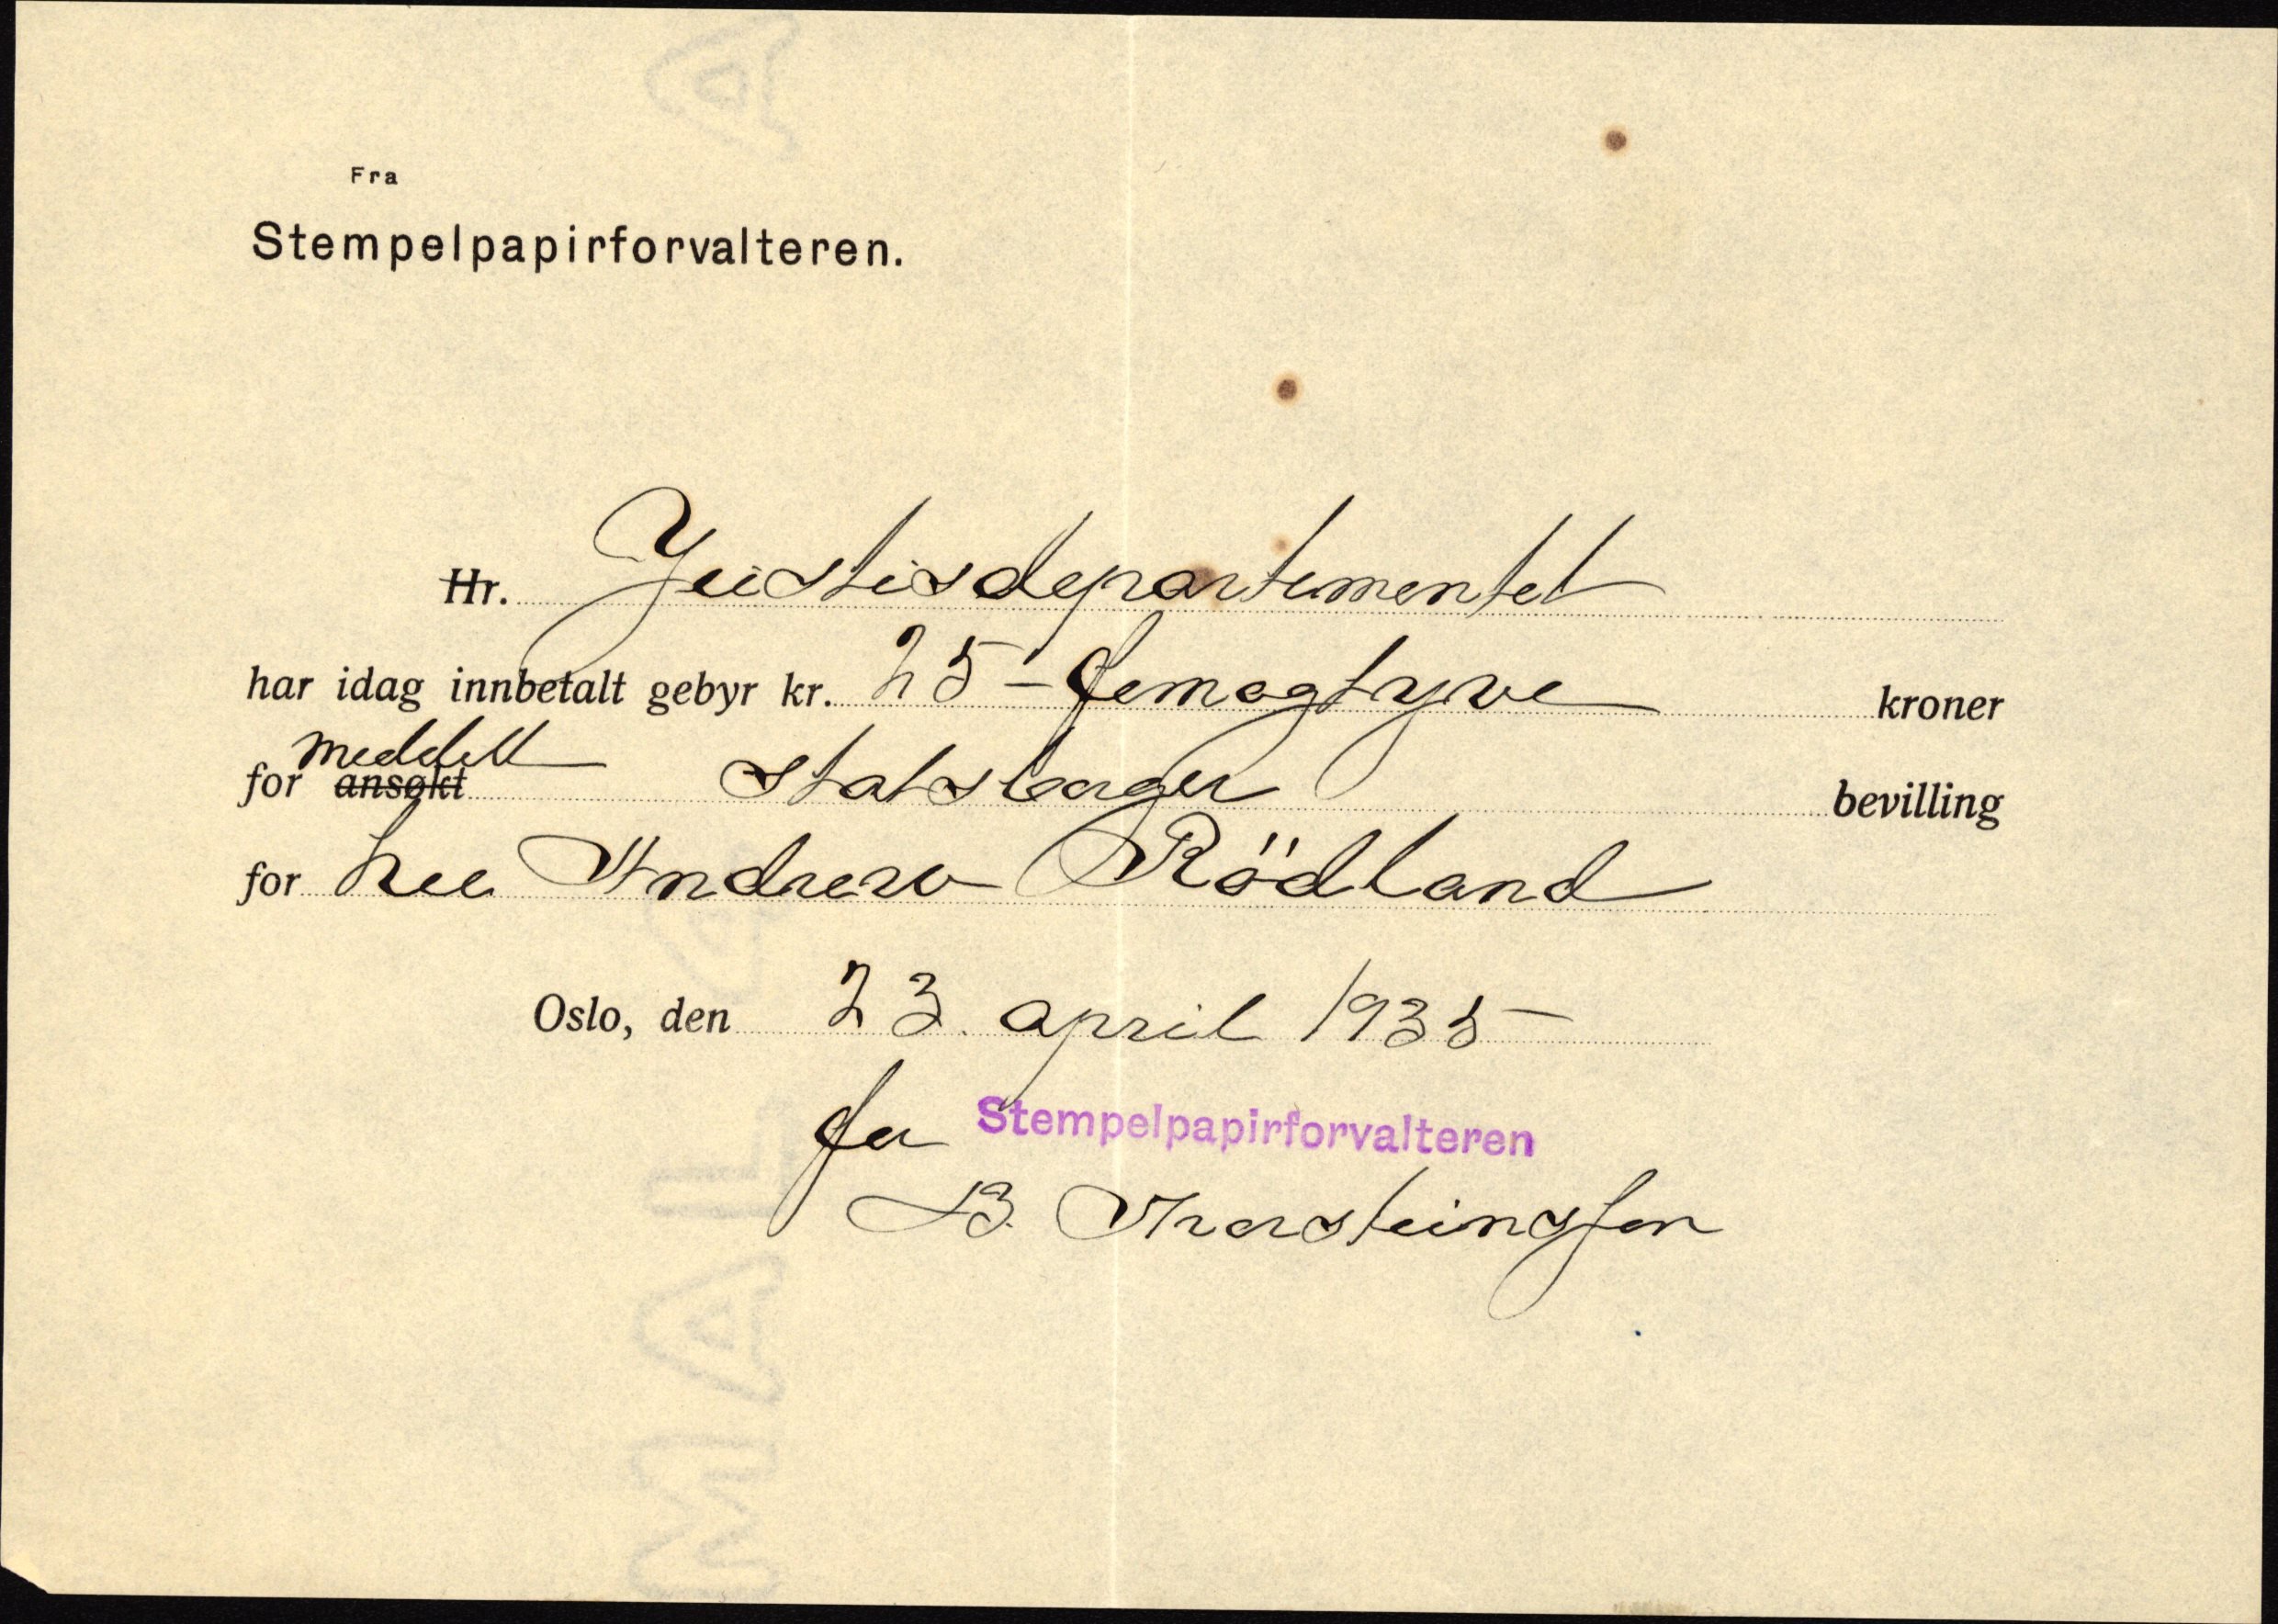 Fra
Stempelpapirforvalteren.
Hr. Justisdepartementet
har idag innbetalt gebyr kr. 25 - femogtyve kroner
for ansøkt meddelt statsborger bevilling
for Lee Andrew Rödland
Oslo, den 23. april 1935
for Stempelpapirforvalteren
B. Thorsteinsen